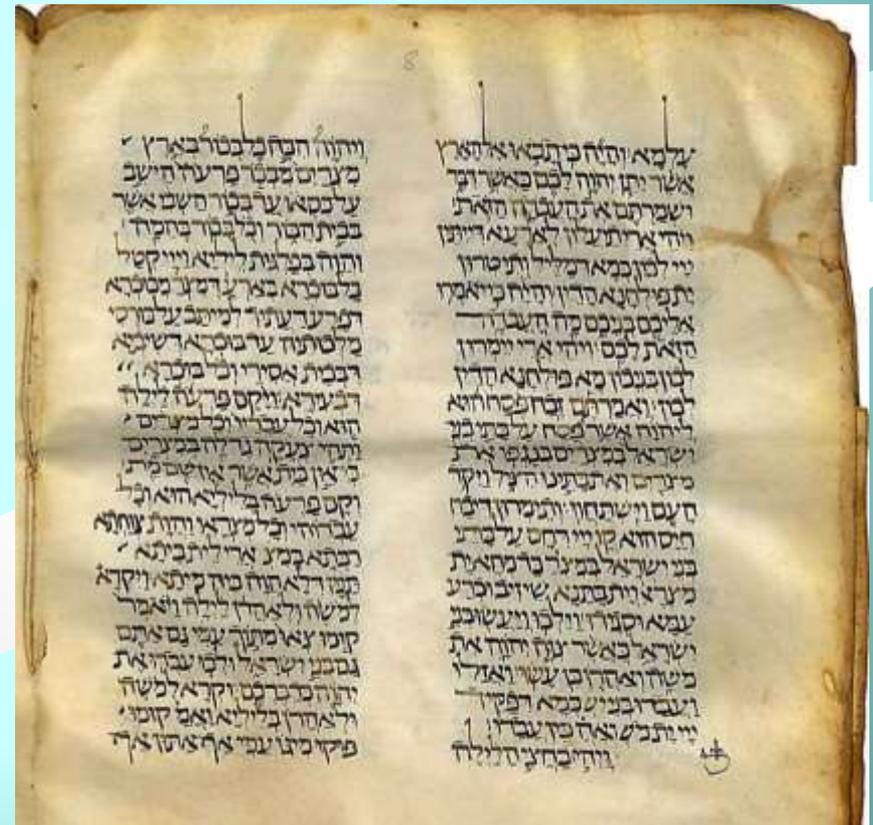 8
עלמא והיה כי תבאו אל הארץ
אשר יתן יהוה לכם כאשר דבר
ושמרתם את העבדה הזאת
ויהי ארי תיעלון לארעא דייתין
ייי לכון כמא דמליל ותיטרון
ית פולחנא הדין והיה כי יאמרו
אליכם בניכם מה העבדה
הזאת לכם ויהי ארי יימרון
לכון בניכון מא פולחנא הדין
לכון ואמרתם זבח פסח הוא
ליהוה אשר פסח על בתי בני
ישראל במצרים בנגפו את
מצרים ואת בתינו הציל ויקד
העם וישתחוו ותימרון דיבח
חייס הוא קד ייי דחס על בתי
בני ישראל במצר כד מחא ית
מצראי וית בתנא שיזיב וכרע
עמא וסגידו וילכו ויעשו בני
ישראל כאשר צוה יהוה את
משה ואהרן כן עשו ואזלו
ועבדו בני יש כמא דפקיד
ייי ית מש ואה כין עבדו
ויהי בחצי הלילה
ויהוה הכה כל בכור בארץ
מצרים מבכר פרעה הישב
על כסאו עד בכור השבי אשר
בבית הבור וכל בכור בהמה
והוה בפלגות ליליא וייי קטל
כל בוכרא בארעא דמצר מבוכרא
דפרעה דעתיד למיתב על כורסי
מלכותיה עד בוכרא דשיביא
דבבית אסירי וכל בוכרא
דבעירא ויקם פרעה לילה
הוא וכל עבדיו וכל מצרים
ותהי צעקה גדלה במצרים
כי אין בית אשר אין שם מת
וקם פרעה בליליא הוא וכל
עבדוהי וכל מצראי והות צוחתא
רבתא במצ ארי לית ביתא
תמן דלא הוה ביה מיתא ויקרא
למשה ולאהרן לילה ויאמר
קומו צאו מתוך עמי גם אתם
גם בני ישראל ולכו עבדו את
יהוה כדברכם וקרא למשה
ולאהרן בליליא ואמ קומו
פוקו מגו עמי אף אתון אף